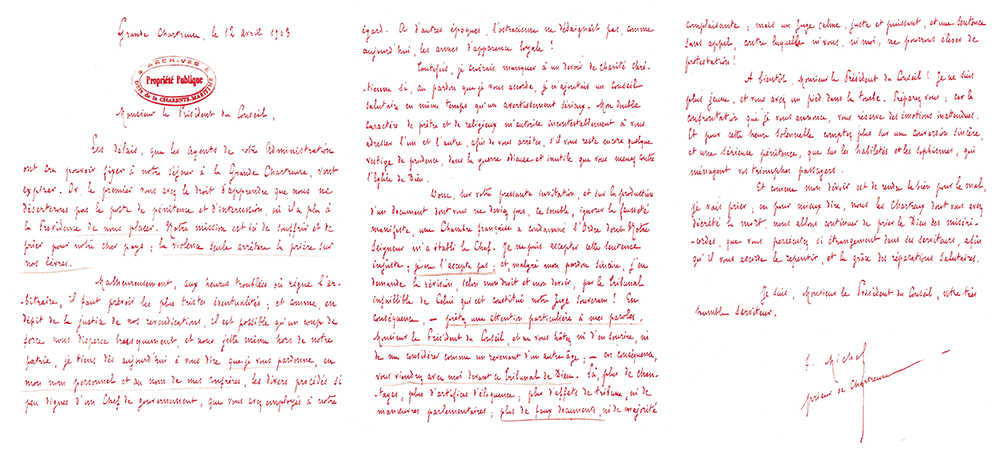 Grande Chartreuse, le 12 avril 1903
ARCHIVES
Propriété Publique
DÉPt de la CHARENTE-MARITIME
Monsieur le Président du Conseil,
Les délais, que les Agents de votre Administration
ont cru pouvoir fixer à notre séjour à la Grande Chartreuse, vont
expirer. Or le premier vous avez le droit d'apprendre que nous ne
déserterons pas le poste de pénitence et d'intercession, où il a plu à
la Providence de nous placer. Notre mission est ici de souffrir et de
prier pour notre cher pays ; la violence seule arrêtera la prière sur
nos lèvres.
Malheureusement, aux heures troublées où règne l'ar-
bitraire, il faut prévoir les plus tristes éventualités ; et comme, en
dépit de la justice de nos revendications, il est possible qu'un coup de
force nous disperse brusquement, et nous jette même hors de notre
patrie, je tiens dès aujourd'hui à vous dire que je vous pardonne, en
mon nom personnel et au nom de mes confrères, les divers procédés si
peu dignes d'un Chef de gouvernement, que vous avez employés à notre
égard. A d'autres époques, l'ostracisme ne dédaignait pas, comme
aujourd'hui, les armes d'apparence loyale !
Toutefois, je croirais manquer à un devoir de charité chré-
tienne si, au pardon que je vous accorde, je n'ajoutais un conseil
salutaire en même temps qu'un avertissement sérieux. Mon double
caractère de prêtre et de religieux m'autorise incontestablement à vous
adresser l'un et l'autre, afin de vous arrêter, s'il vous reste encore quelque
vestige de prudence, dans la guerre odieuse et inutile que vous menez contre
l'Eglise de Dieu.
Donc, sur votre pressante invitation, et sur la production
d'un document dont vous ne deviez pas, ce semble, ignorer la fausseté
manifeste, une Chambre française a condamné l'Ordre dont Notre
Seigneur m'a établi le Chef. Je ne puis accepter cette sentence
injuste ; je ne l'accepte pas ; et malgré mon pardon sincère, j'en
demande la révision, selon mon droit et mon devoir, par le tribunal
infaillible de Celui qui est constitué notre Juge Souverain ! En
conséquence, – prêtez une attention particulière à mes paroles,
Monsieur le Président du Conseil, et ne vous hâtez ni d'en sourire, ni
de me considérer comme un revenant d'un autre âge ; – en conséquence,
vous viendrez avec moi devant ce tribunal de Dieu. Là, plus de chan-
tages, plus d'artifices d'éloquence ; plus d'effets de tribune, ni de
manœuvres parlementaires ; plus de faux documents, ni de majorité
complaisante ; mais un Juge calme, juste et puissant, et une sentence
sans appel, contre laquelle ni vous, ni moi, ne pourrons élever de
protestation !
A bientôt, Monsieur le Président du Conseil ! Je ne suis
plus jeune, et vous avez un pied dans la tombe. Préparez vous ; car la
confrontation que je vous annonce, vous réserve des émotions inattendues.
Et pour cette heure solennelle comptez plus sur une conversion sincère,
et une sérieuse pénitence, que sur les habiletés et les sophismes, qui
ménagent vos triomphes passagers.
Et comme mon devoir est de rendre le bien pour le mal,
je vais prier ; ou pour mieux dire, nous les Chartreux dont vous avez
décrété la mort, nous allons continuer de prier le Dieu des miséri-
cordes, que vous persécutez si étrangement dans ses serviteurs, afin
qu'il vous accorde le repentir, et la grâce des réparations salutaires.
Je suis, Monsieur le Président du Conseil, votre très
humble Serviteur.
f. Michel
prieur de Chartreuse